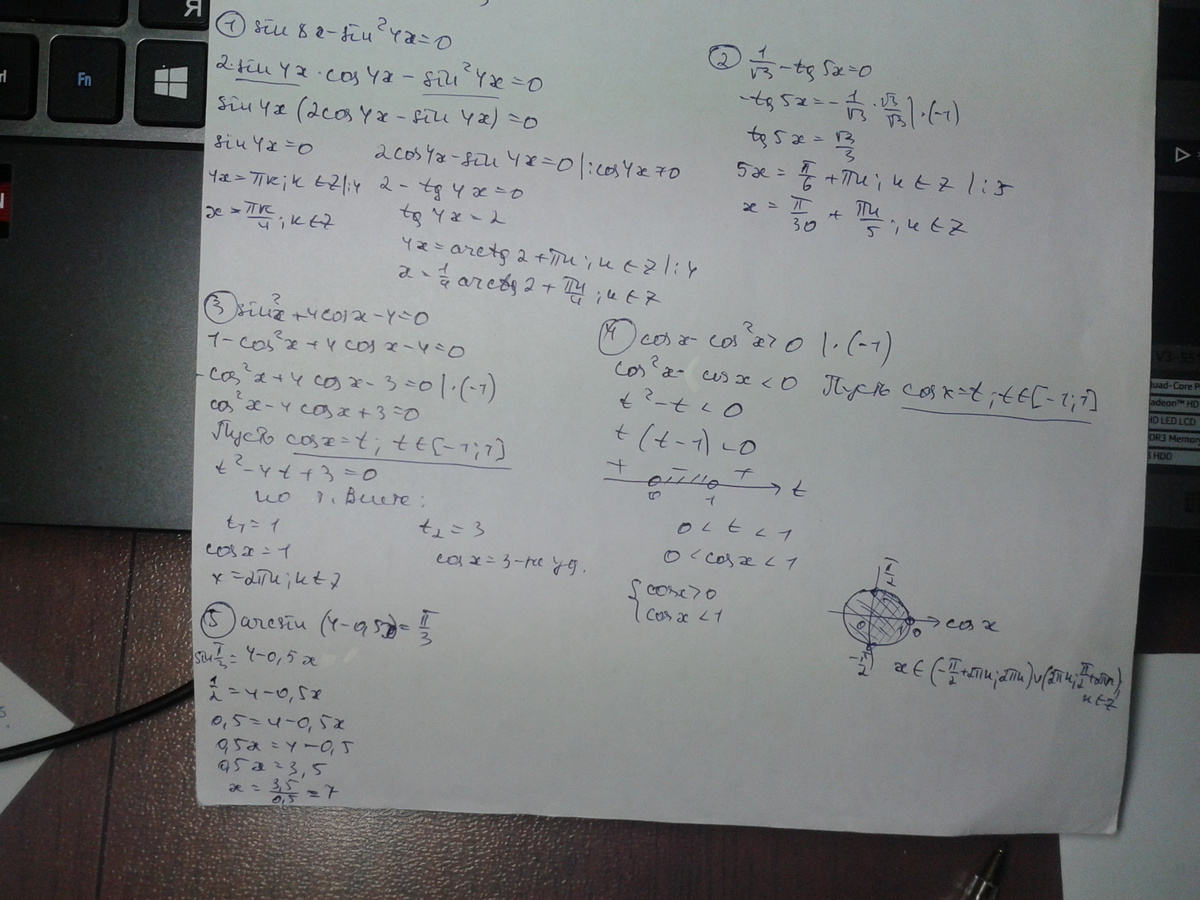 Я
Fn
① sin 8x - sin²4x = 0
2·sin 4x · cos 4x - sin²4x = 0
sin 4x (2cos 4x - sin 4x) = 0
sin 4x = 0
4x = πk; k ∈ Z |:4
x = πk/4; k ∈ Z
2cos4x - sin 4x = 0 |:cos4x ≠ 0
2 - tg 4x = 0
tg 4x = 2
4x = arctg 2 + πn; n ∈ Z |:4
x = 1/4 arctg 2 + πn/4; n ∈ Z
② 1/√3 - tg 5x = 0
-tg 5x = -1/√3 · √3/√3 | ·(-1)
tg 5x = √3/3
5x = π/6 + πn; n ∈ Z |:5
x = π/30 + πn/5; n ∈ Z
③ sin²x + 4cosx - 4 = 0
1 - cos²x + 4 cos x - 4 = 0
-cos²x + 4 cos x - 3 = 0 | ·(-1)
cos²x - 4 cos x + 3 = 0
Пусть cosx = t; t ∈ [-1;1]
t² - 4t + 3 = 0
по т. Виете:
t₁ = 1
t₂ = 3
cosx = 1
cosx = 3 - не уд.
x = 2πn; n ∈ Z
④ cosx - cos²x > 0 | ·(-1)
cos²x - cosx < 0 Пусть cosx = t; t ∈ [-1;1]
t² - t < 0
t (t - 1) < 0
+ - +
0 1 t
0 < t < 1
0 < cosx < 1
{ cosx > 0
cosx < 1
π/2
0 1 0 cos x
-π/2
x ∈ (-π/2 + 2πn; 2πn) ∪ (2πn; π/2 + 2πn),
n ∈ Z
⑤ arcsin (4 - 0,5x) = π/3
sin π/3 = 4 - 0,5x
1/2 = 4 - 0,5x
0,5 = 4 - 0,5x
0,5x = 4 - 0,5
0,5x = 3,5
x = 3,5/0,5 = 7